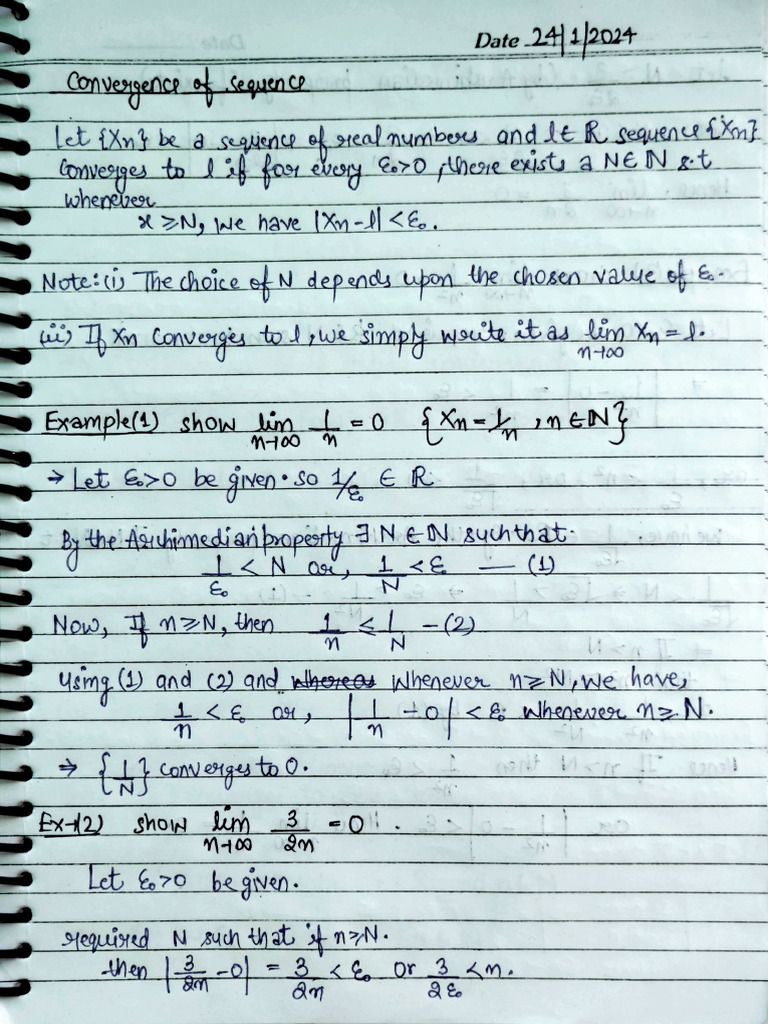 Date 24/1/2024
Convergence of sequence
Let {Xn} be a sequence of real numbers and l ∈ R sequence {Xn}
Converges to l if for every ε₀>0, there exists a N∈ℕ s.t
whenever
x ≥N, we have |Xn-l| <ε₀.
Note:(i) The choice of N depends upon the chosen value of ε₀.
(ii) If Xn converges to l, we simply write it as lim n→∞ Xn = l.
Example(1) show lim n→∞ 1/n = 0 {Xn = 1/n, n∈ℕ}
→ Let ε₀>0 be given. so 1/ε₀ ∈ R
By the Archimedian property ∃ N∈ℕ such that.
1/ε₀ < N or, 1/N < ε — (1)
Now, If n≥N, then 1/n ≤ 1/N -(2)
using (1) and (2) and whereas whenever n≥N, we have,
1/n < ε₀ or, |1/n - 0| < ε₀ whenever n≥N.
⇒ {1/N} converges to 0.
Ex-(2) show lim n→∞ 3/2n = 0.
Let ε₀>0 be given.
required N such that if n≥N.
then |3/2n - 0| = 3/2n < ε₀ or 3/2ε₀ < n.